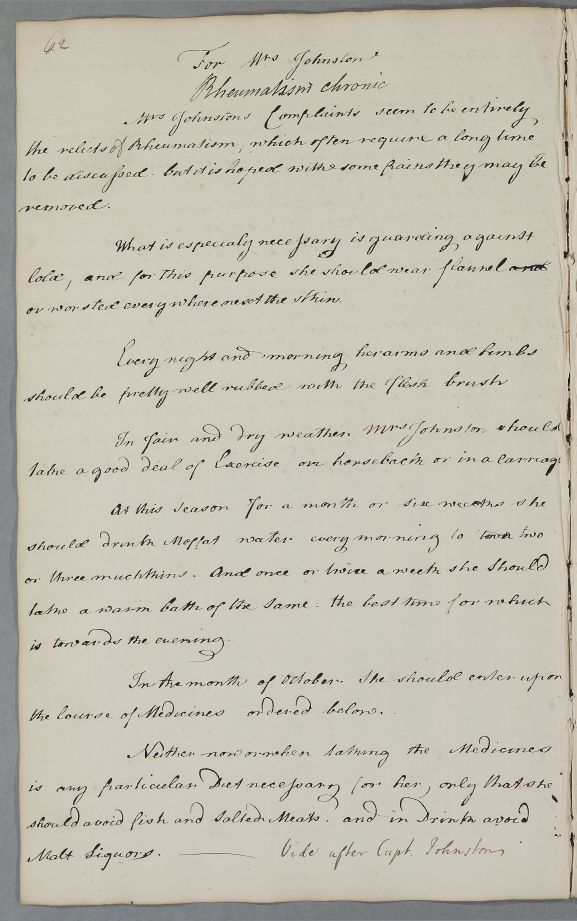 62
For Mrs Johnston
Rheumatism chronic
Mrs Johnstons Complaints seem to be entirely
the relicts of Rheumatism, which often require a long time
to be discussed but it is hoped with some pains they may be
removed.
What is especialy necessary is guarding against
Cold, and for this purpose she should wear flannel and
or worsted every where next the skin.
Every night and morning her arms and limbs
should be pretty well rubbed with the flesh brush
In fair and dry weather Mrs Johnston should
take a good deal of Exercise on horseback or in a carriage
At this season for a month or six weeks she
should drink Moffat water every morning to two
or three muchkins. And once or twice a week she should
take a warm bath of the same. the best time for which
is towards the evening.
In the month of October. She should enter upon
the Course of Medicines ordered below.
Neither now or when taking the Medicines
is any particular Diet necessary for her, only that she
should avoid fish and salted Meats. and in Drink avoid
Malt Liquors. Vide after Capt. Johnstons